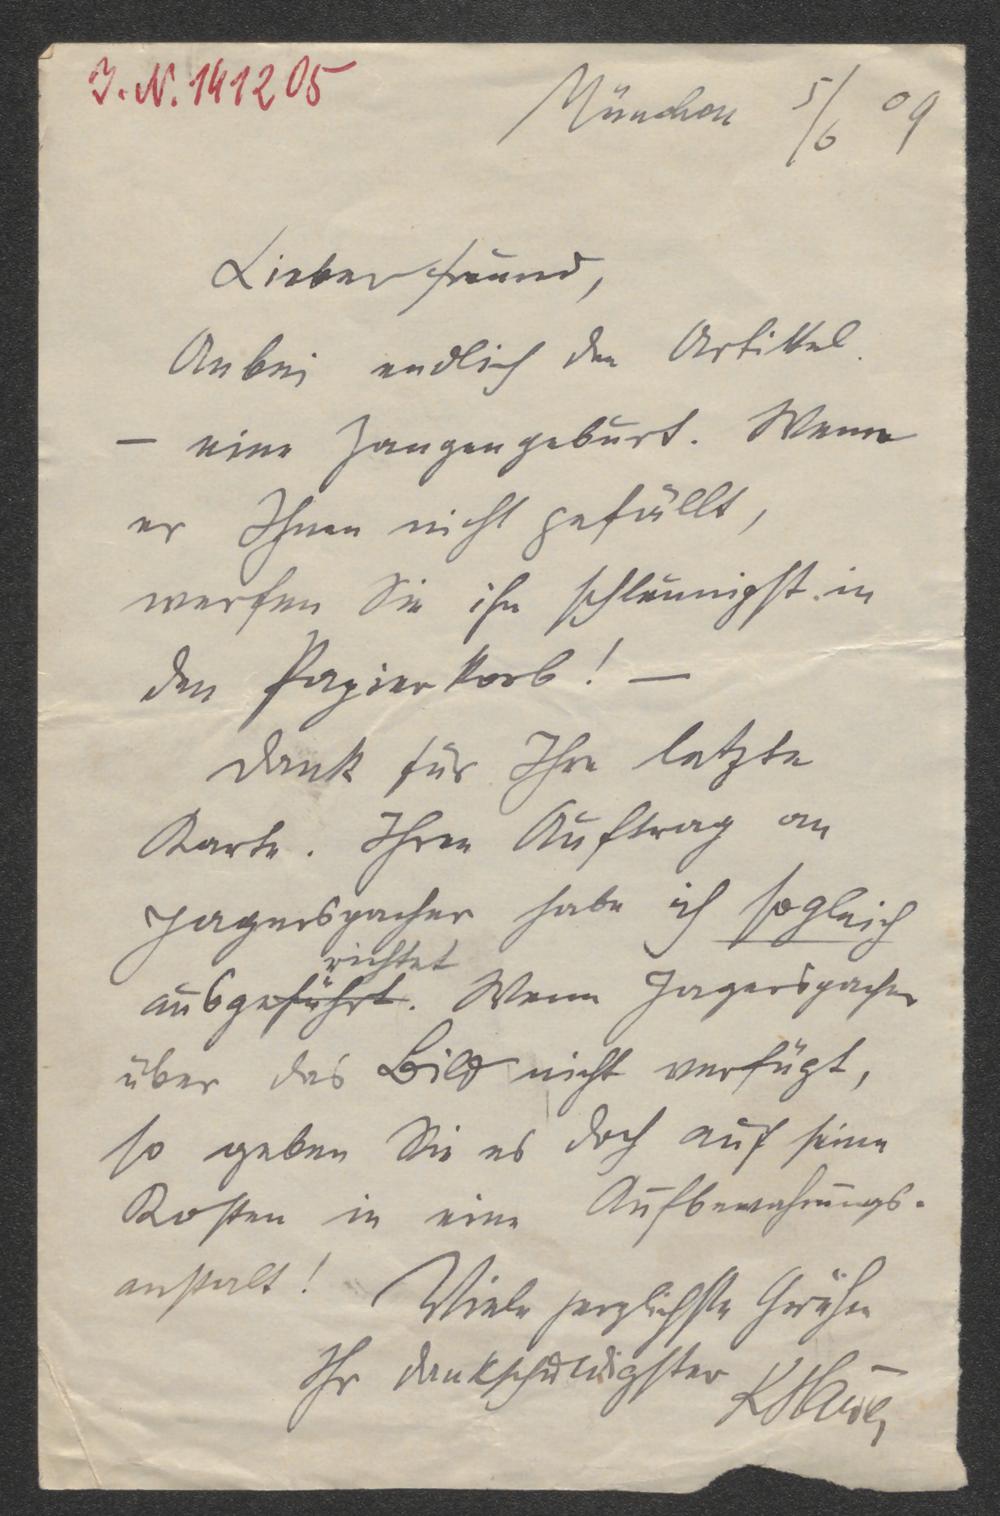 J. N. 141205
München 5/6 09
Lieber Freund,
Anbei endlich den Artikel.
— eine Zangengeburt. Wenn
er Ihnen nicht gefällt,
werfen Sie ihn schleunigst in
den Papierkorb! —
Dank für Ihre letzte
Karte. Ihren Auftrag an
Jagerspacher habe ich sogleich
richtet
ausgeführt. Wenn Jagerspacher
über das Bild nicht verfügt,
so geben Sie es doch auf seine
Kosten in eine Aufbewahrungs-
anstalt!
Viele herzlichste Grüße
Ihr dankschuldigster